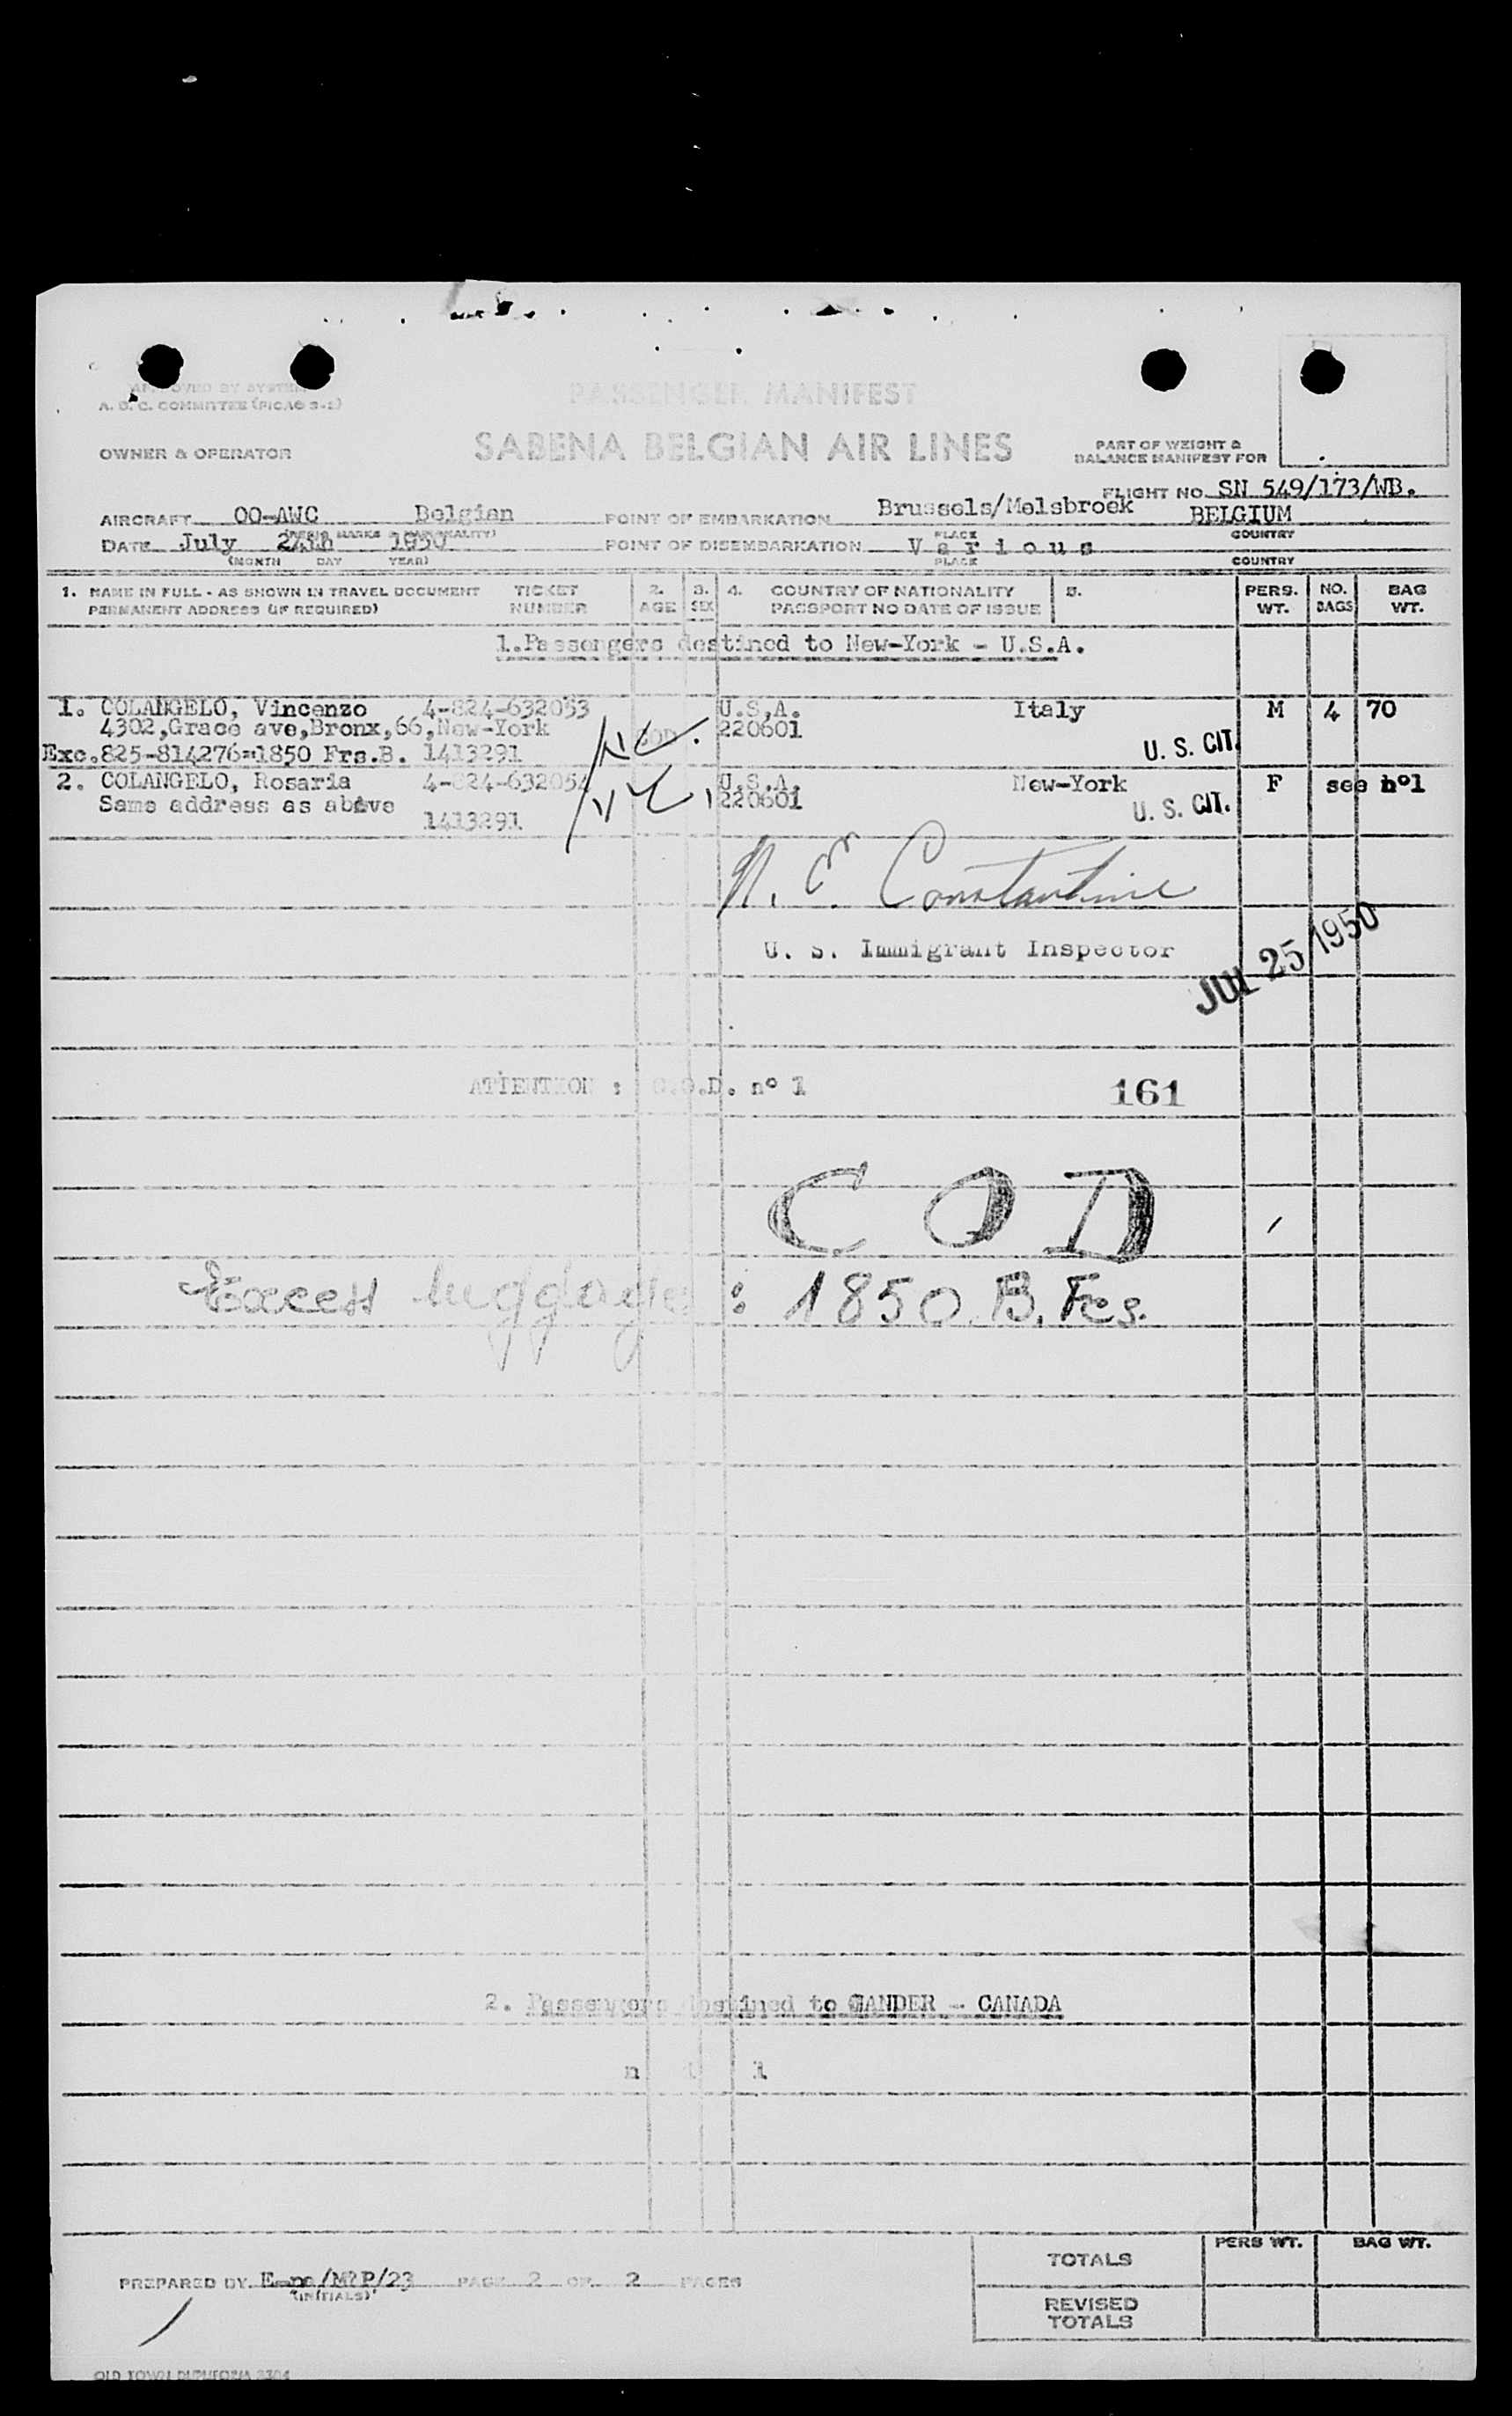 APPROVED BY SYSTEM
A. D. C. COMMITTEE (PICAO 3-2)
PASSENGER MANIFEST
OWNER & OPERATOR
SABENA BELGIAN AIR LINES
PART OF WEIGHT &
BALANCE MANIFEST FOR
FLIGHT NO. SN 549/173/WB.
AIRCRAFT OO-AWC Belgian POINT OF EMBARKATION Brussels/Melsbroek BELGIUM
PLACE COUNTRY
DATE July 1950 POINT OF DISEMBARKATION Various
(MONTH DAY YEAR) PLACE COUNTRY
1. NAME IN FULL - AS SHOWN IN TRAVEL DOCUMENT TICKET 2. 3. 4. COUNTRY OF NATIONALITY 5. PERS. NO. BAG
PERMANENT ADDRESS (IF REQUIRED) NUMBER AGE SEX PASSPORT NO DATE OF ISSUE WT. BAGS WT.
1.Passengers destined to New-York - U.S.A.
1. COLANGELO, Vincenzo 4-824-632053 U.S.A. Italy M 4 70
4302,Grace ave,Bronx,66,New-York COD 220601
U. S. CIT.
Exc.825-814276=1850 Frs.B. 1413291
2. COLANGELO, Rosaria 4-824-632054 U.S.A. New-York F see n°1
Same address as above 220601 U. S. CIT.
1413291
N. E. Constantine
U. S. Immigrant Inspector
JUL 25 1950
ATTENTION : C.O.D. n° 1 161
COD
Excess luggage : 1850 B. Fcs.
2. Passengers destined to GANDER - CANADA
n i l
TOTALS PERS WT. BAG WT.
PREPARED BY PAGE 2 OF 2 PAGES
(INITIALS)
REVISED
TOTALS